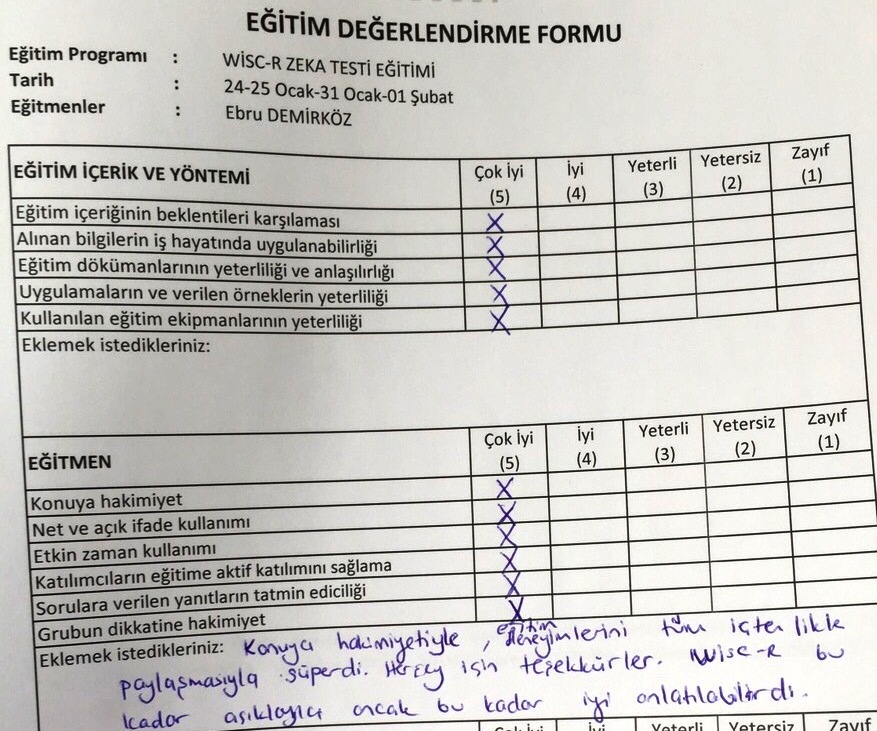 EĞİTİM DEĞERLENDİRME FORMU
Eğitim Programı : WİSC-R ZEKA TESTİ EĞİTİMİ
Tarih : 24-25 Ocak-31 Ocak-01 Şubat
Eğitmenler : Ebru DEMİRKÖZ
EĞİTİM İÇERİK VE YÖNTEMİ Çok İyi (5) İyi (4) Yeterli (3) Yetersiz (2) Zayıf (1)
Eğitim içeriğinin beklentileri karşılaması X
Alınan bilgilerin iş hayatında uygulanabilirliği X
Eğitim dökümanlarının yeterliliği ve anlaşılırlığı X
Uygulamaların ve verilen örneklerin yeterliliği X
Kullanılan eğitim ekipmanlarının yeterliliği X
Eklemek istedikleriniz:
EĞİTMEN Çok İyi (5) İyi (4) Yeterli (3) Yetersiz (2) Zayıf (1)
Konuya hakimiyet X
Net ve açık ifade kullanımı X
Etkin zaman kullanımı X
Katılımcıların eğitime aktif katılımını sağlama X
Sorulara verilen yanıtların tatmin ediciliği X
Grubun dikkatine hakimiyet X
Eklemek istedikleriniz: Konuya hakimiyetiyle, eğitim deneyimlerini tüm içtenlikle
paylaşmasıyla süperdi. Herşey için teşekkürler. Wisc-R bu
kadar açıklayıcı ancak bu kadar iyi anlatılabilirdi.
Çok İyi İyi Yeterli Yetersiz Zayıf